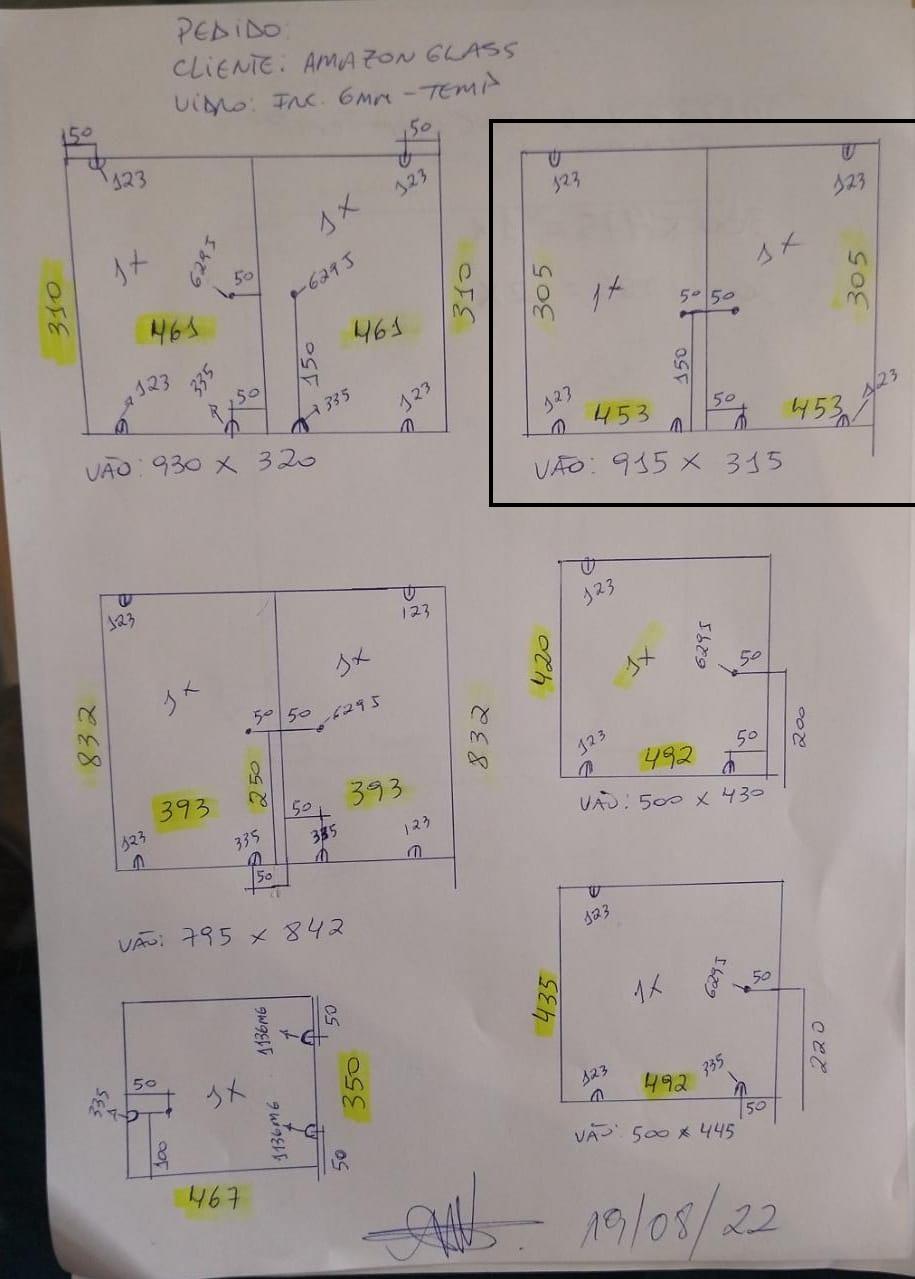 PEDIDO:
CLIENTE: AMAZON GLASS
VIDRO: INC. 6MM - TEMP
50
50
123
123
1X
1X
6295
50
6295
310
461
461
310
150
123
335
50
335
123
VÃO: 930 X 320
123
123
305
1X
1X
305
50
50
150
123
453
50
453
123
VÃO: 915 X 315
123
123
1X
1X
50
50
6295
832
832
393
250
393
50
123
335
335
123
50
VÃO: 795 X 842
123
420
1X
6295
50
200
123
492
50
VÃO: 500 X 430
123
435
1X
6295
50
220
123
492
335
50
VÃO: 500 X 445
1136M6
50
50
335
1X
350
100
1136M6
50
467
19/08/22